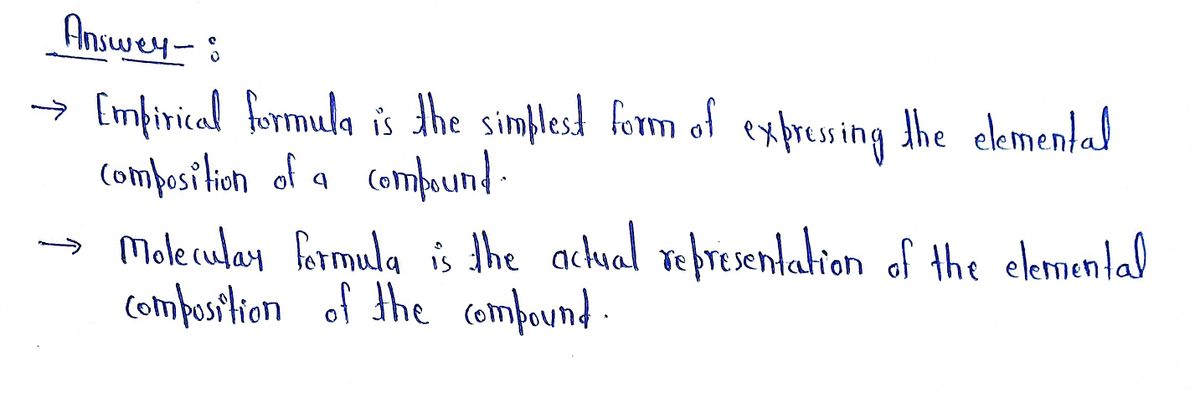 Answer- :
→ Empirical formula is the simplest form of expressing the elemental
composition of a compound.
→ Molecular formula is the actual representation of the elemental
composition of the compound.